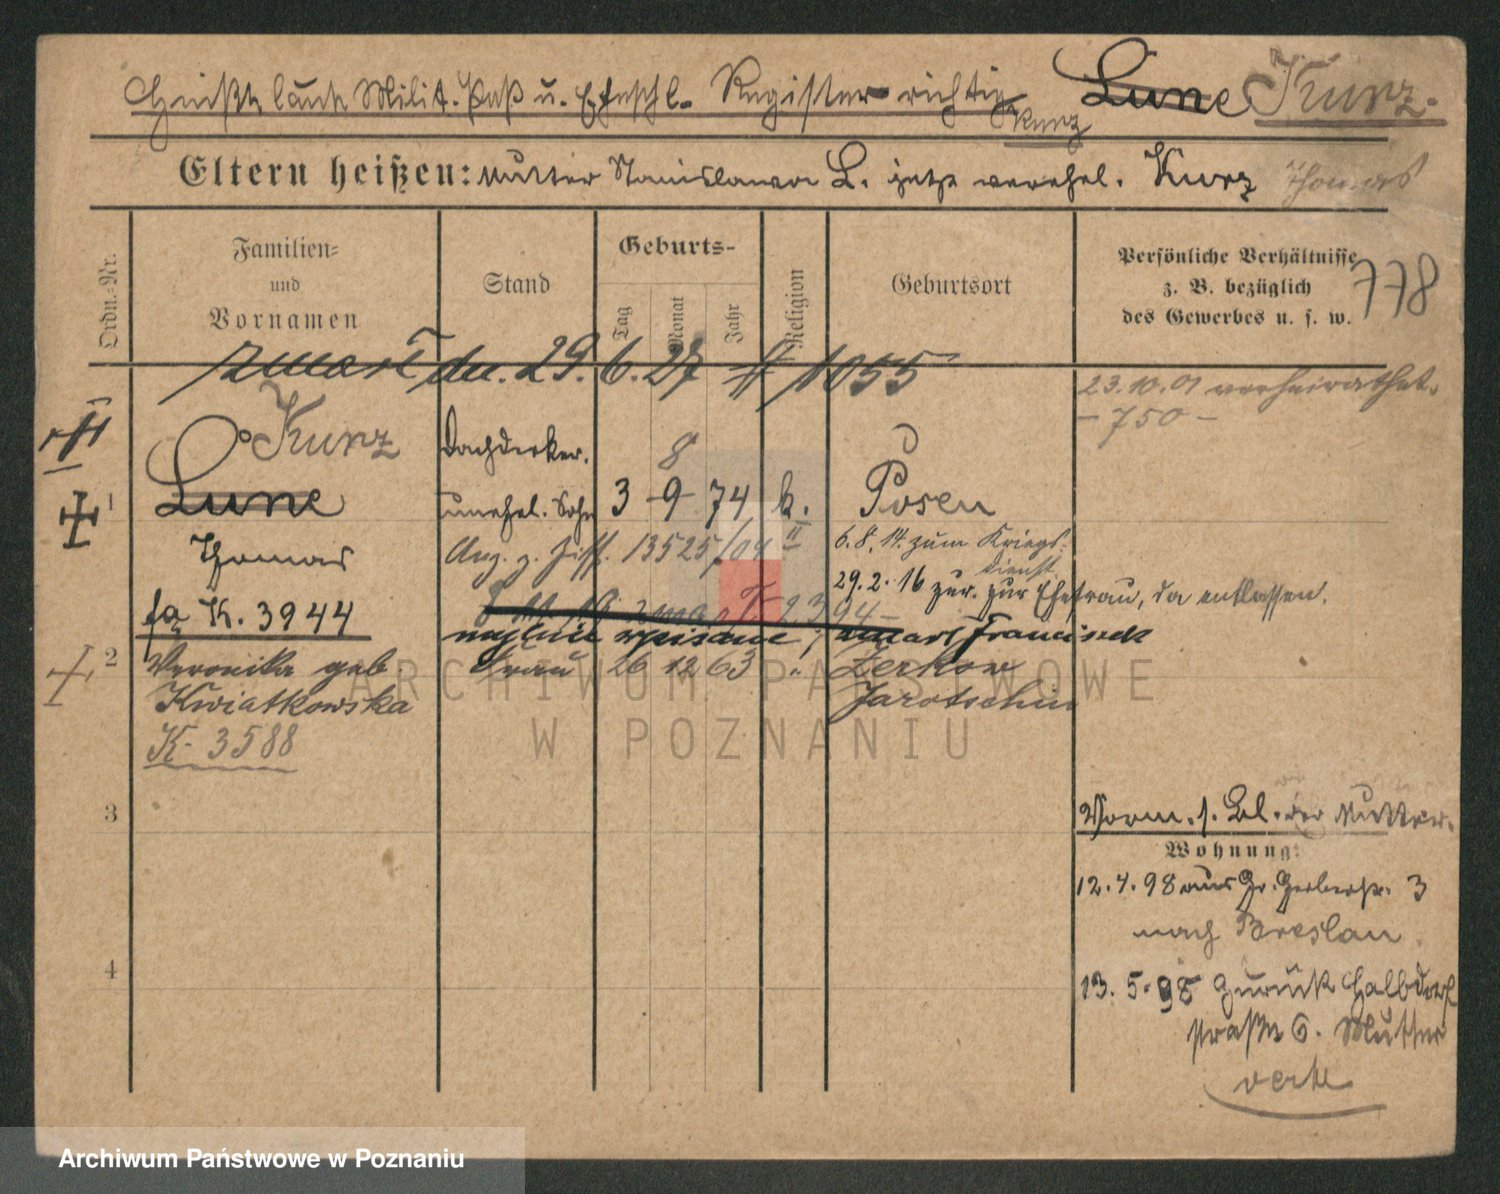 heißt laut Milit. Paß u. Eheschl. Register richtig Lune Kurz.
Kurz
Eltern heißen: Mutter Stanislawa L. jetzt verehel. Kurz Thomas
Ordn.-Nr.
Familien-
und
Vornamen
Stand
Geburts-
Tag
Monat
Jahr
Religion
Geburtsort
Persönliche Verhältnisse
z. B. bezüglich
des Gewerbes u. s. w.
778
zmarł dn. 29. 6. 27 # 1055
23.10.01 verheirathet.
- 750 -
Kurz
Dachdecker.
8
1
Lune
unehel. Sohn
3 9 74 k.
Posen
Thomas
Ang. z. Ziff. 13525/04 II
6.8.14. zum Kriegs-
dienst
29.2.16 zur. zur Ehefrau, da entlassen.
fa K. 3944
mylnie wpisane, zmarł Franciszek
2
Veronika geb
Frau 26 12 63 "
Zerkow
Kwiatkowska
Jarotschin
K. 3588
3
Vorm. s. Bl. der Mutter.
Wohnung:
12.4.98 aus Gr. Gerberstr. 3
nach Breslau.
4
13.5.98 zurück Halbdorf
straße 6. Mutter
verte
ARCHIWUM PAŃSTWOWE
W POZNANIU
Archiwum Państwowe w Poznaniu